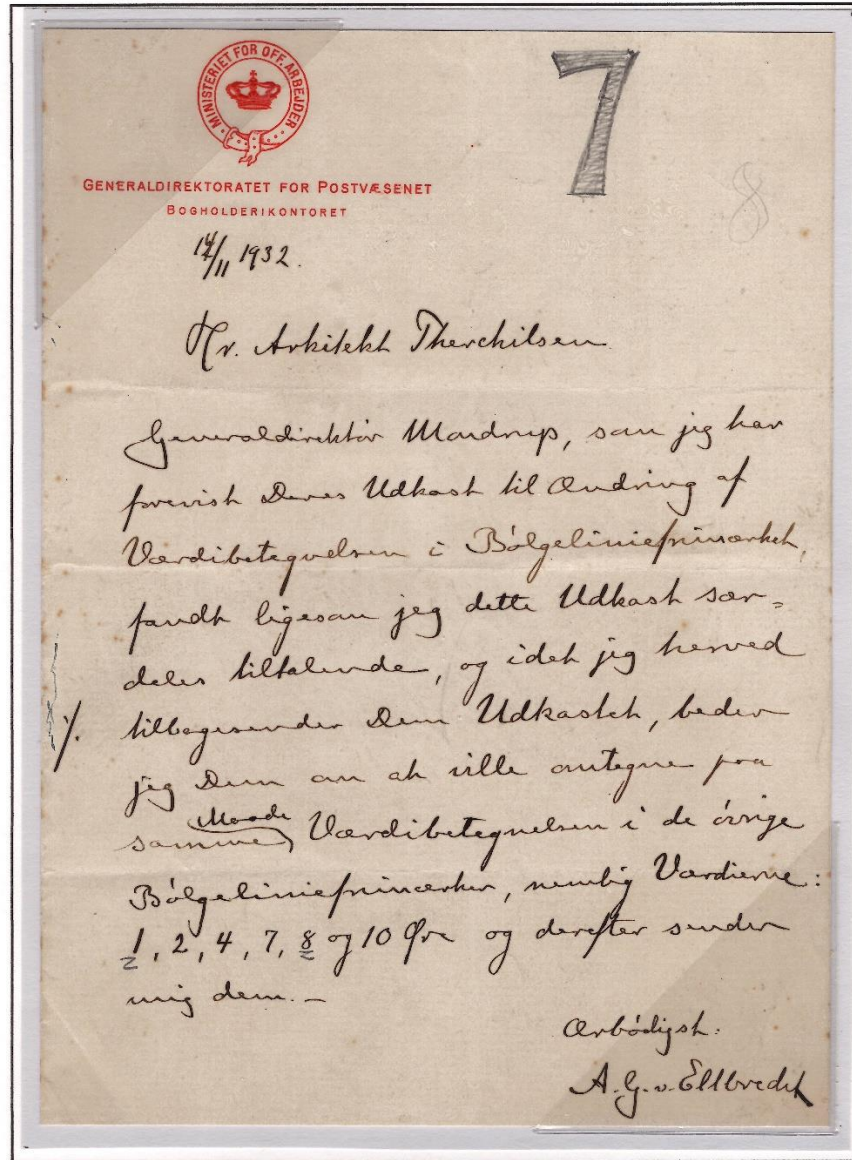 MINISTERIET FOR OFF. ARBEJDER
7
8
GENERALDIREKTORATET FOR POSTVÆSENET
BOGHOLDERIKONTORET
14/11 1932.
Hr. Arkitekt Therchilsen
Generaldirektör Mondrup, som jeg har
forevist Deres Udkast til Ændring af
Værdibetegnelsen i Bölgeliniefrimærket,
fandt ligesom jeg dette Udkast sær=
deles tiltalende, og idet jeg herved
tilbagesender Dem Udkastet, beder
jeg Dem om at ville antegne paa
samme Maade Værdibetegnelsen i de övrige
Bölgeliniefrimærker, nemlig Værdierne:
1, 2, 4, 7, 8 og 10 Øre og derefter sender
mig dem. –
Ærbödigst.
A. G. v. Ellbrecht